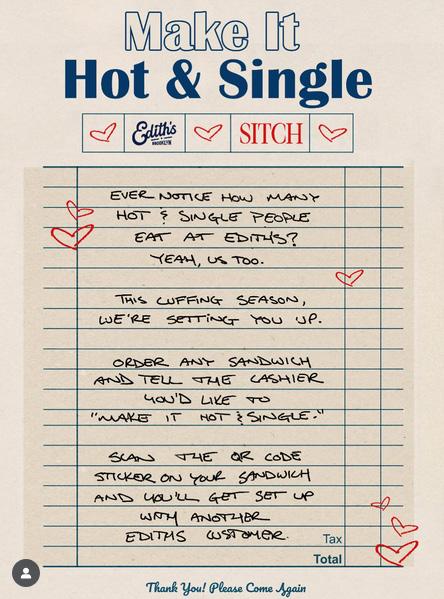 Make It
Hot & Single
Edith's
BROOKLYN
SITCH
EVER NOTICE HOW MANY
HOT & SINGLE PEOPLE
EAT AT EDITH'S?
YEAH, US TOO.
THIS CUFFING SEASON,
WE'RE SETTING YOU UP.
ORDER ANY SANDWICH
AND TELL THE CASHIER
YOU'D LIKE TO
"MAKE IT HOT & SINGLE."
SCAN THE QR CODE
STICKER ON YOUR SANDWICH
AND YOU'LL GET SET UP
WITH ANOTHER
EDITHS CUSTOMER.
Tax
Total
Thank You! Please Come Again